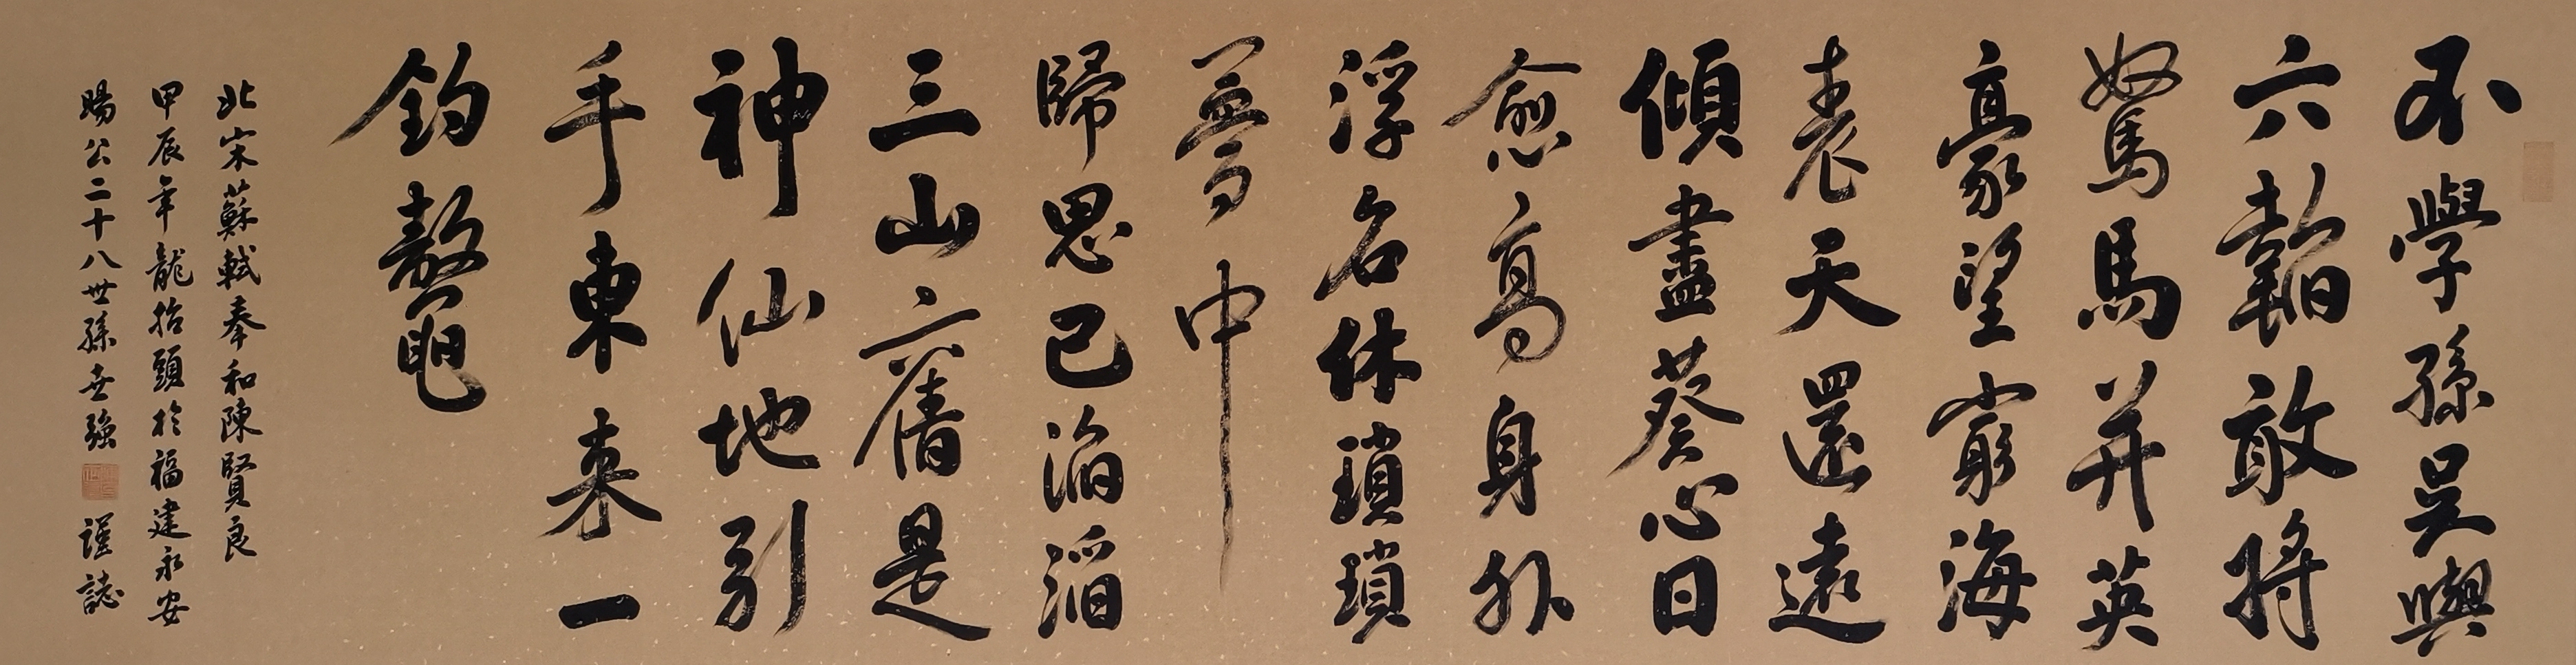 不學孫吳與
六韜敢將
駑馬并英
豪望窮海
表天還遠
傾盡葵心日
愈高身外
浮名休瑣瑣
夢中
歸思已滔滔
三山舊是
神仙地引
手東來一
釣鼇
北宋蘇軾奉和陳賢良
甲辰年龍抬頭於福建永安
公二十八世孫世強 謹誌